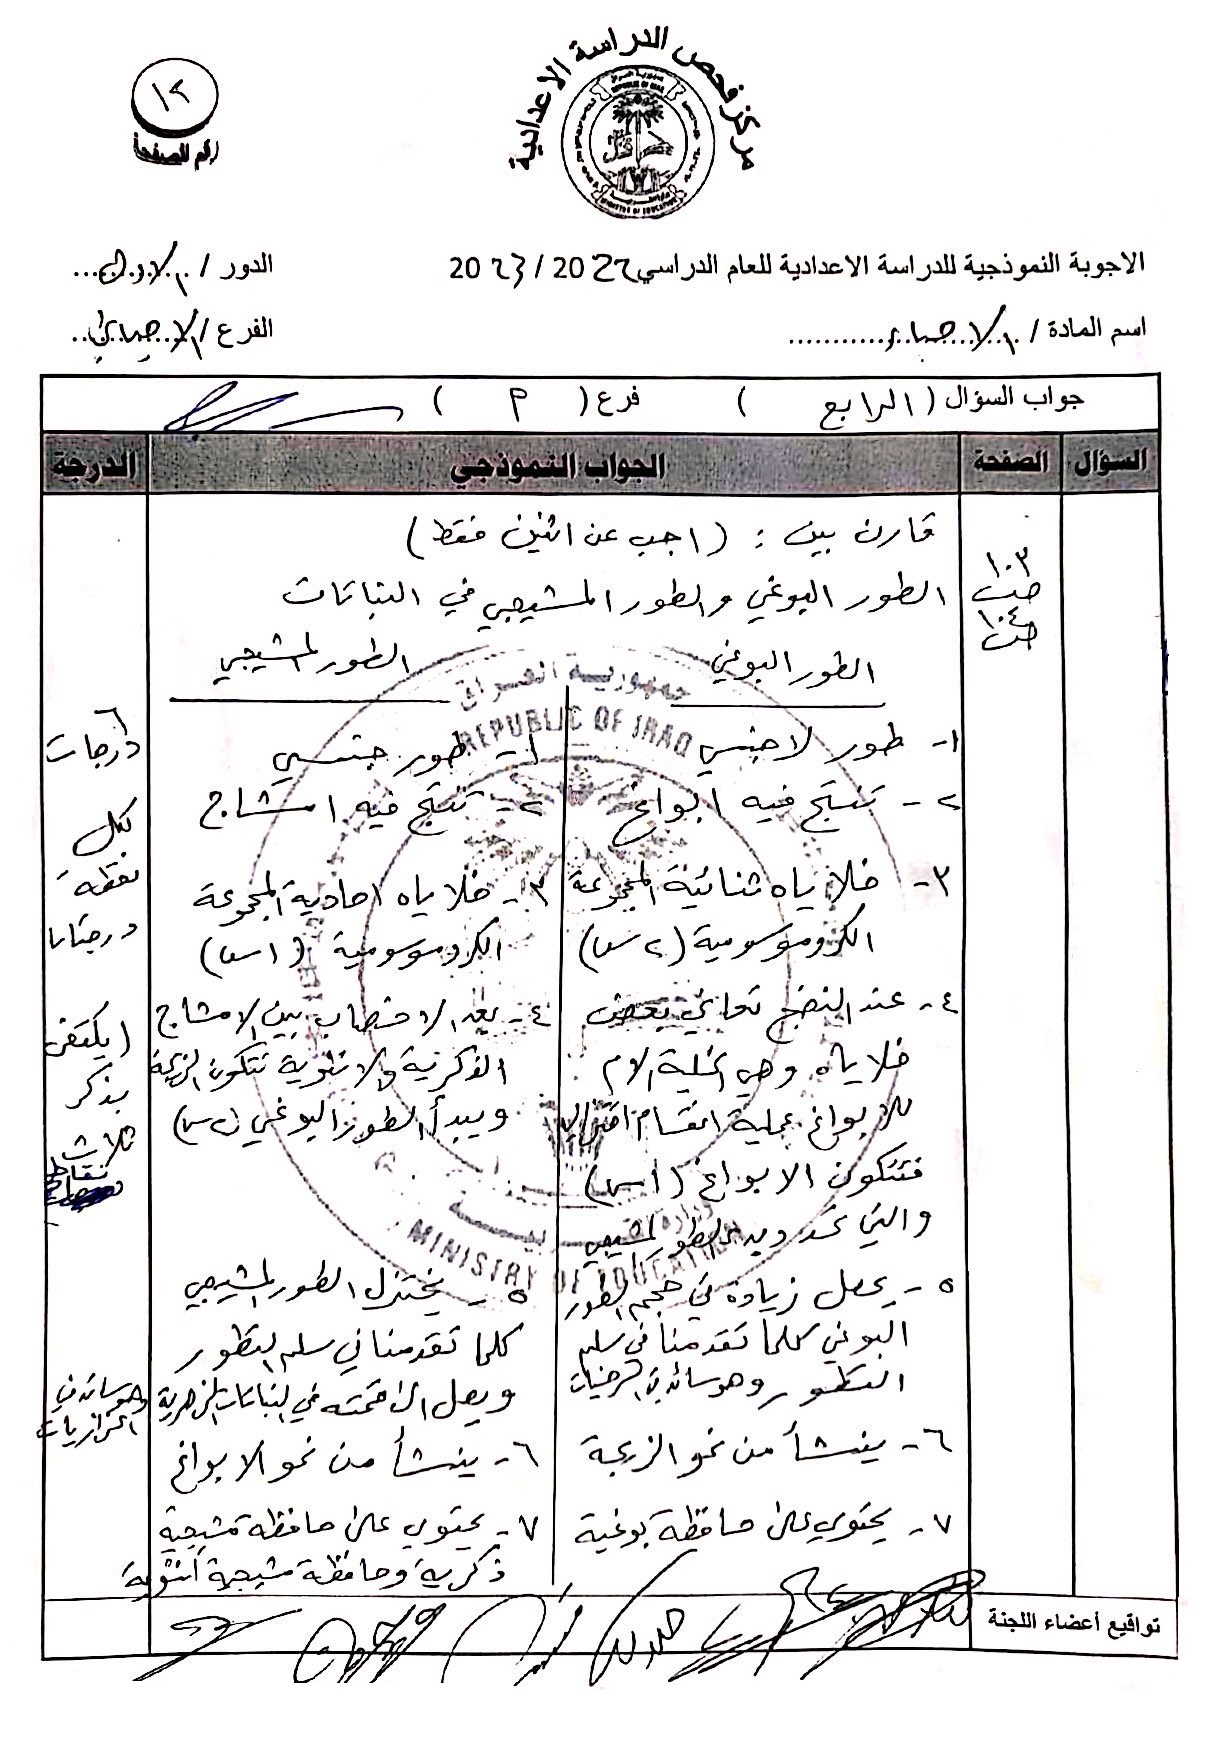 مركز فحص الدراسة الاعدادية
١٢
رقم الصفحة
الاجوبة النموذجية للدراسة الاعدادية للعام الدراسي 2022 / 2023
الدور / الاول
اسم المادة / الاحياء
الفرع / الاحيائي
جواب السؤال ( الرابع ) فرع ( م )
السؤال الصفحة الجواب النموذجي الدرجة
قارن بين : ( اجب عن اثنين فقط )
ص ١٠٣
ص ١٠٤
الطور البوغي والطور المشيجي في النباتات
الطور البوغي
١- طور لا جنسي
٢- تنتج فيه ابواغ
٣- خلاياه ثنائية المجموعة
الكروموسومية (٢س)
٤- عند النضج تعاني بعض
خلاياه وهي الخلية الام
للابواغ عملية انقسام اختزالي
فتتكون الابواغ (١س)
والتي تحدد بدء الطور المشيجي
٥- يحصل زيادة في حجم الطور
البوغي كلما تقدمنا في سلم
التطور وهو سائد في السرخسيات
٦- ينشأ من نمو الزيجة
٧- يحتوي على حافظة بوغية
الطور المشيجي
١- طور جنسي
٢- تنتج فيه امشاج
٣- خلاياه احادية المجموعة
الكروموسومية (١س)
٤- بعد الاخصاب بين الامشاج
الذكرية والانثوية تتكون الزيجة
ويبدأ الطور البوغي (٢س)
٥- يختزل الطور المشيجي
كلما تقدمنا في سلم التطور
ويصل الى قمته في النباتات الزهرية
وهو سائد في
الحزازيات
٦- ينشأ من نمو الابواغ
٧- يحتوي على حافظة مشيجية
ذكرية وحافظة مشيجية انثوية
٦
درجات
لكل
نقطة
درجتان
(يكتفى
بذكر
ثلاث
نقاط
تواقيع أعضاء اللجنة
جمهورية العراق
REPUBLIC OF IRAQ
MINISTRY OF EDUCATION